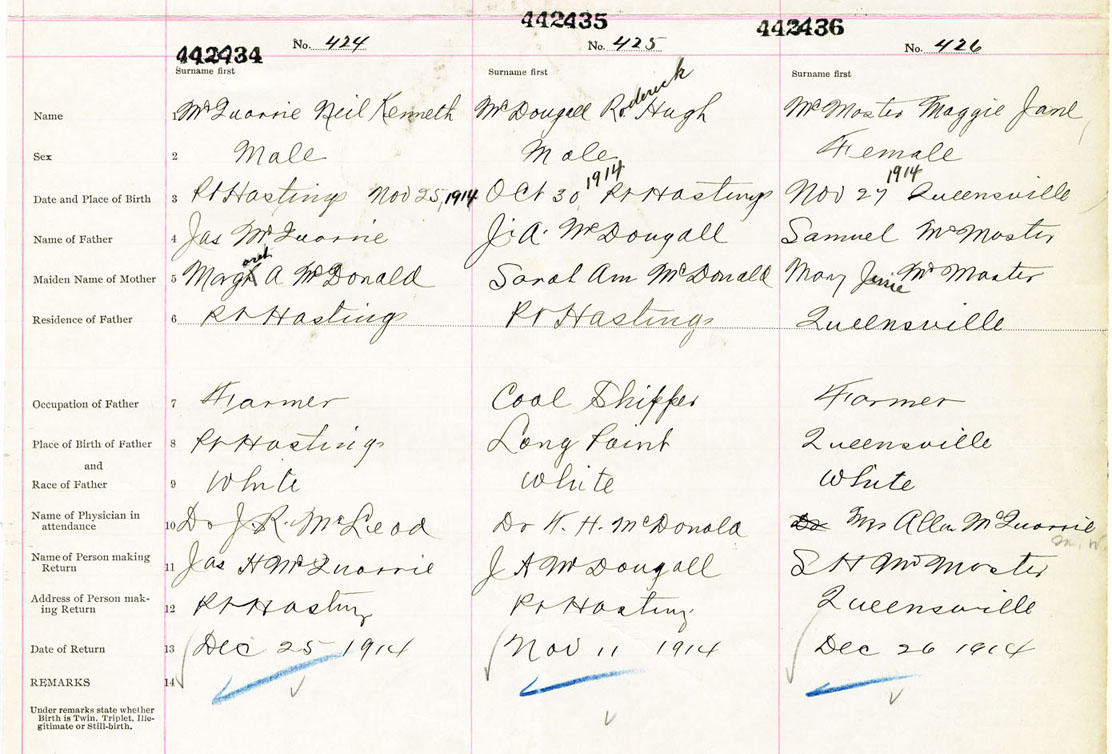 442434 442435 442436
No. 424 No. 425 No. 426
Surname first Surname first Surname first
Name 1 McQuarrie Neil Kenneth McDougall Roderick Hugh McMaster Maggie Jane
Sex 2 Male Male Female
Date and Place of Birth 3 Pt Hastings Nov 25, 1914 Oct 30, 1914 Pt Hastings Nov 27 1914 Queensville
Name of Father 4 Jas McQuarrie J. A. McDougall Samuel McMaster
Maiden Name of Mother 5 Margaret A McDonald Sarah Ann McDonald Mary Jessie McMaster
Residence of Father 6 Pt Hastings Pt Hastings Queensville
Occupation of Father 7 Farmer Coal Shipper Farmer
Place of Birth of Father 8 Pt Hastings Long Point Queensville
and
Race of Father 9 White White White
Name of Physician in
attendance 10 Dr J. R. McLeod Dr H. McDonald Mrs Allan McQuarrie
m.w.
Name of Person making
Return 11 Jas H McQuarrie J A McDougall S H McMaster
Address of Person mak-
ing Return 12 Pt Hasting Pt Hasting Queensville
Date of Return 13 Dec 25 1914 Nov 11 1914 Dec 26 1914
REMARKS 14
Under remarks state whether
Birth is Twin, Triplet, Ille-
gitimate or Still-birth.